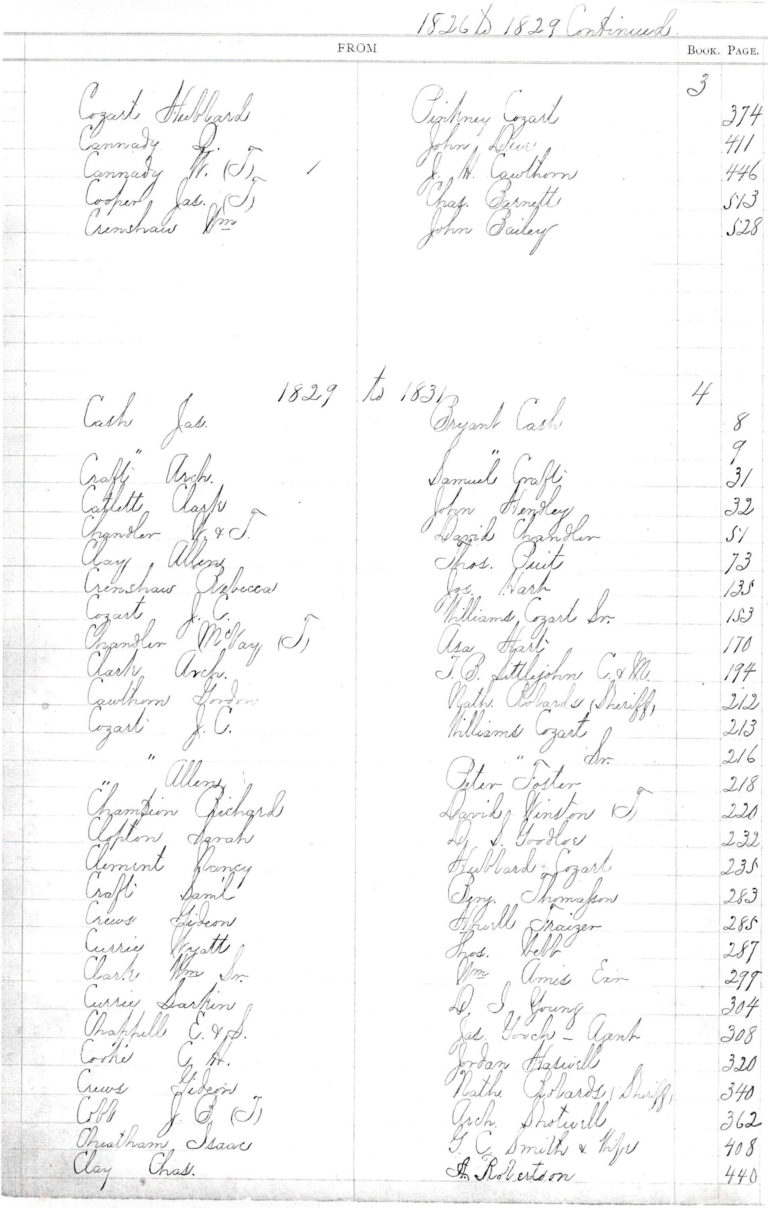 1826 to 1829 Continued.
FROM BOOK. PAGE.
3
Cozart Hubbard Pinkney Cozart 374
Cannady D. John 411
Cannady W. (T) J. H. Cawthorn 446
Cooper Jas. (T) Chas. Barnett 513
Crenshaw Wm John Bailey 528
1829 to 1831 4
Cash Jas. Bryant Cash 8
" " 9
Craft Arch. Samuel Craft 31
Catlett Clark John Hendley 32
Chandler W. & T. David Chandler 51
Clay Allen Thos. 73
Crenshaw Rebecca Jos. Hart 135
Cozart J. C. Williams Cozart Sr. 153
Chandler McVay (T) Asa Hart 170
Clark Arch. T. B. Littlejohn C. & M. 194
Cawthorn Gordon Nath. Robards (Sheriff) 212
Cozart J. C. Williams Cozart 213
" Sr. 216
" Allen Peter Foster 218
Champion Richard David Winston (T) 220
Clopton Sarah D. S. Goodloe 232
Clement Nancy Hubbard Cozart 235
Craft Saml Benj. Thomasson 283
Crews Gideon Howell Fraizer 285
Currie Wyatt Thos. Webb 287
Clark Wm Sr. Wm Amis Exr 299
Currie Larkin D. I. Young 304
Chappell E. & S. Jas. Gooch - Agent 308
Cooke C. H. Jordan Haswell 320
Crews Gideon Nath. Robards (Sheriff) 340
Cobb J. B. (T) Arch. Shotwell 362
Cheatham Isaac G. C. Smith & Wife 408
Clay Chas. A. Robertson 440